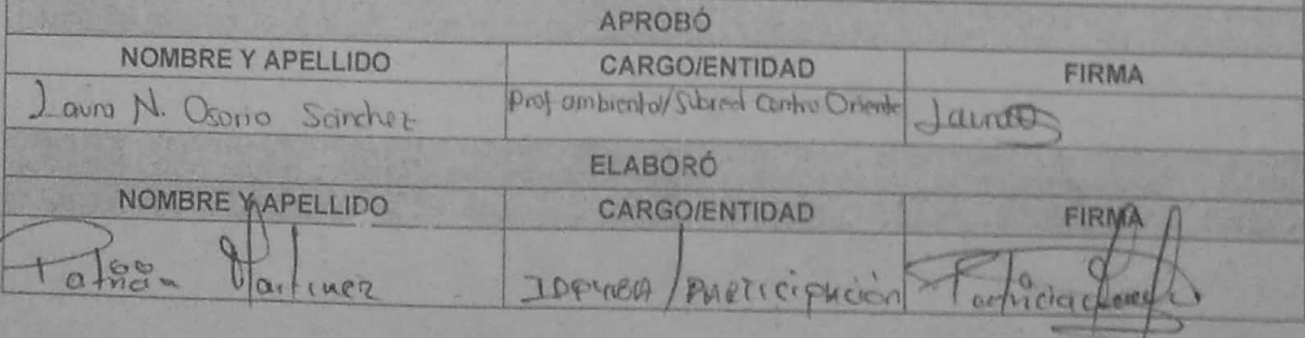 APROBÓ
NOMBRE Y APELLIDO CARGO/ENTIDAD FIRMA
Laura N. Osorio Sánchez Prof ambiental/Subred Centro Oriente Laura
ELABORÓ
NOMBRE Y APELLIDO CARGO/ENTIDAD FIRMA
Patricia Martinez IDPYBA/Participación Patricia